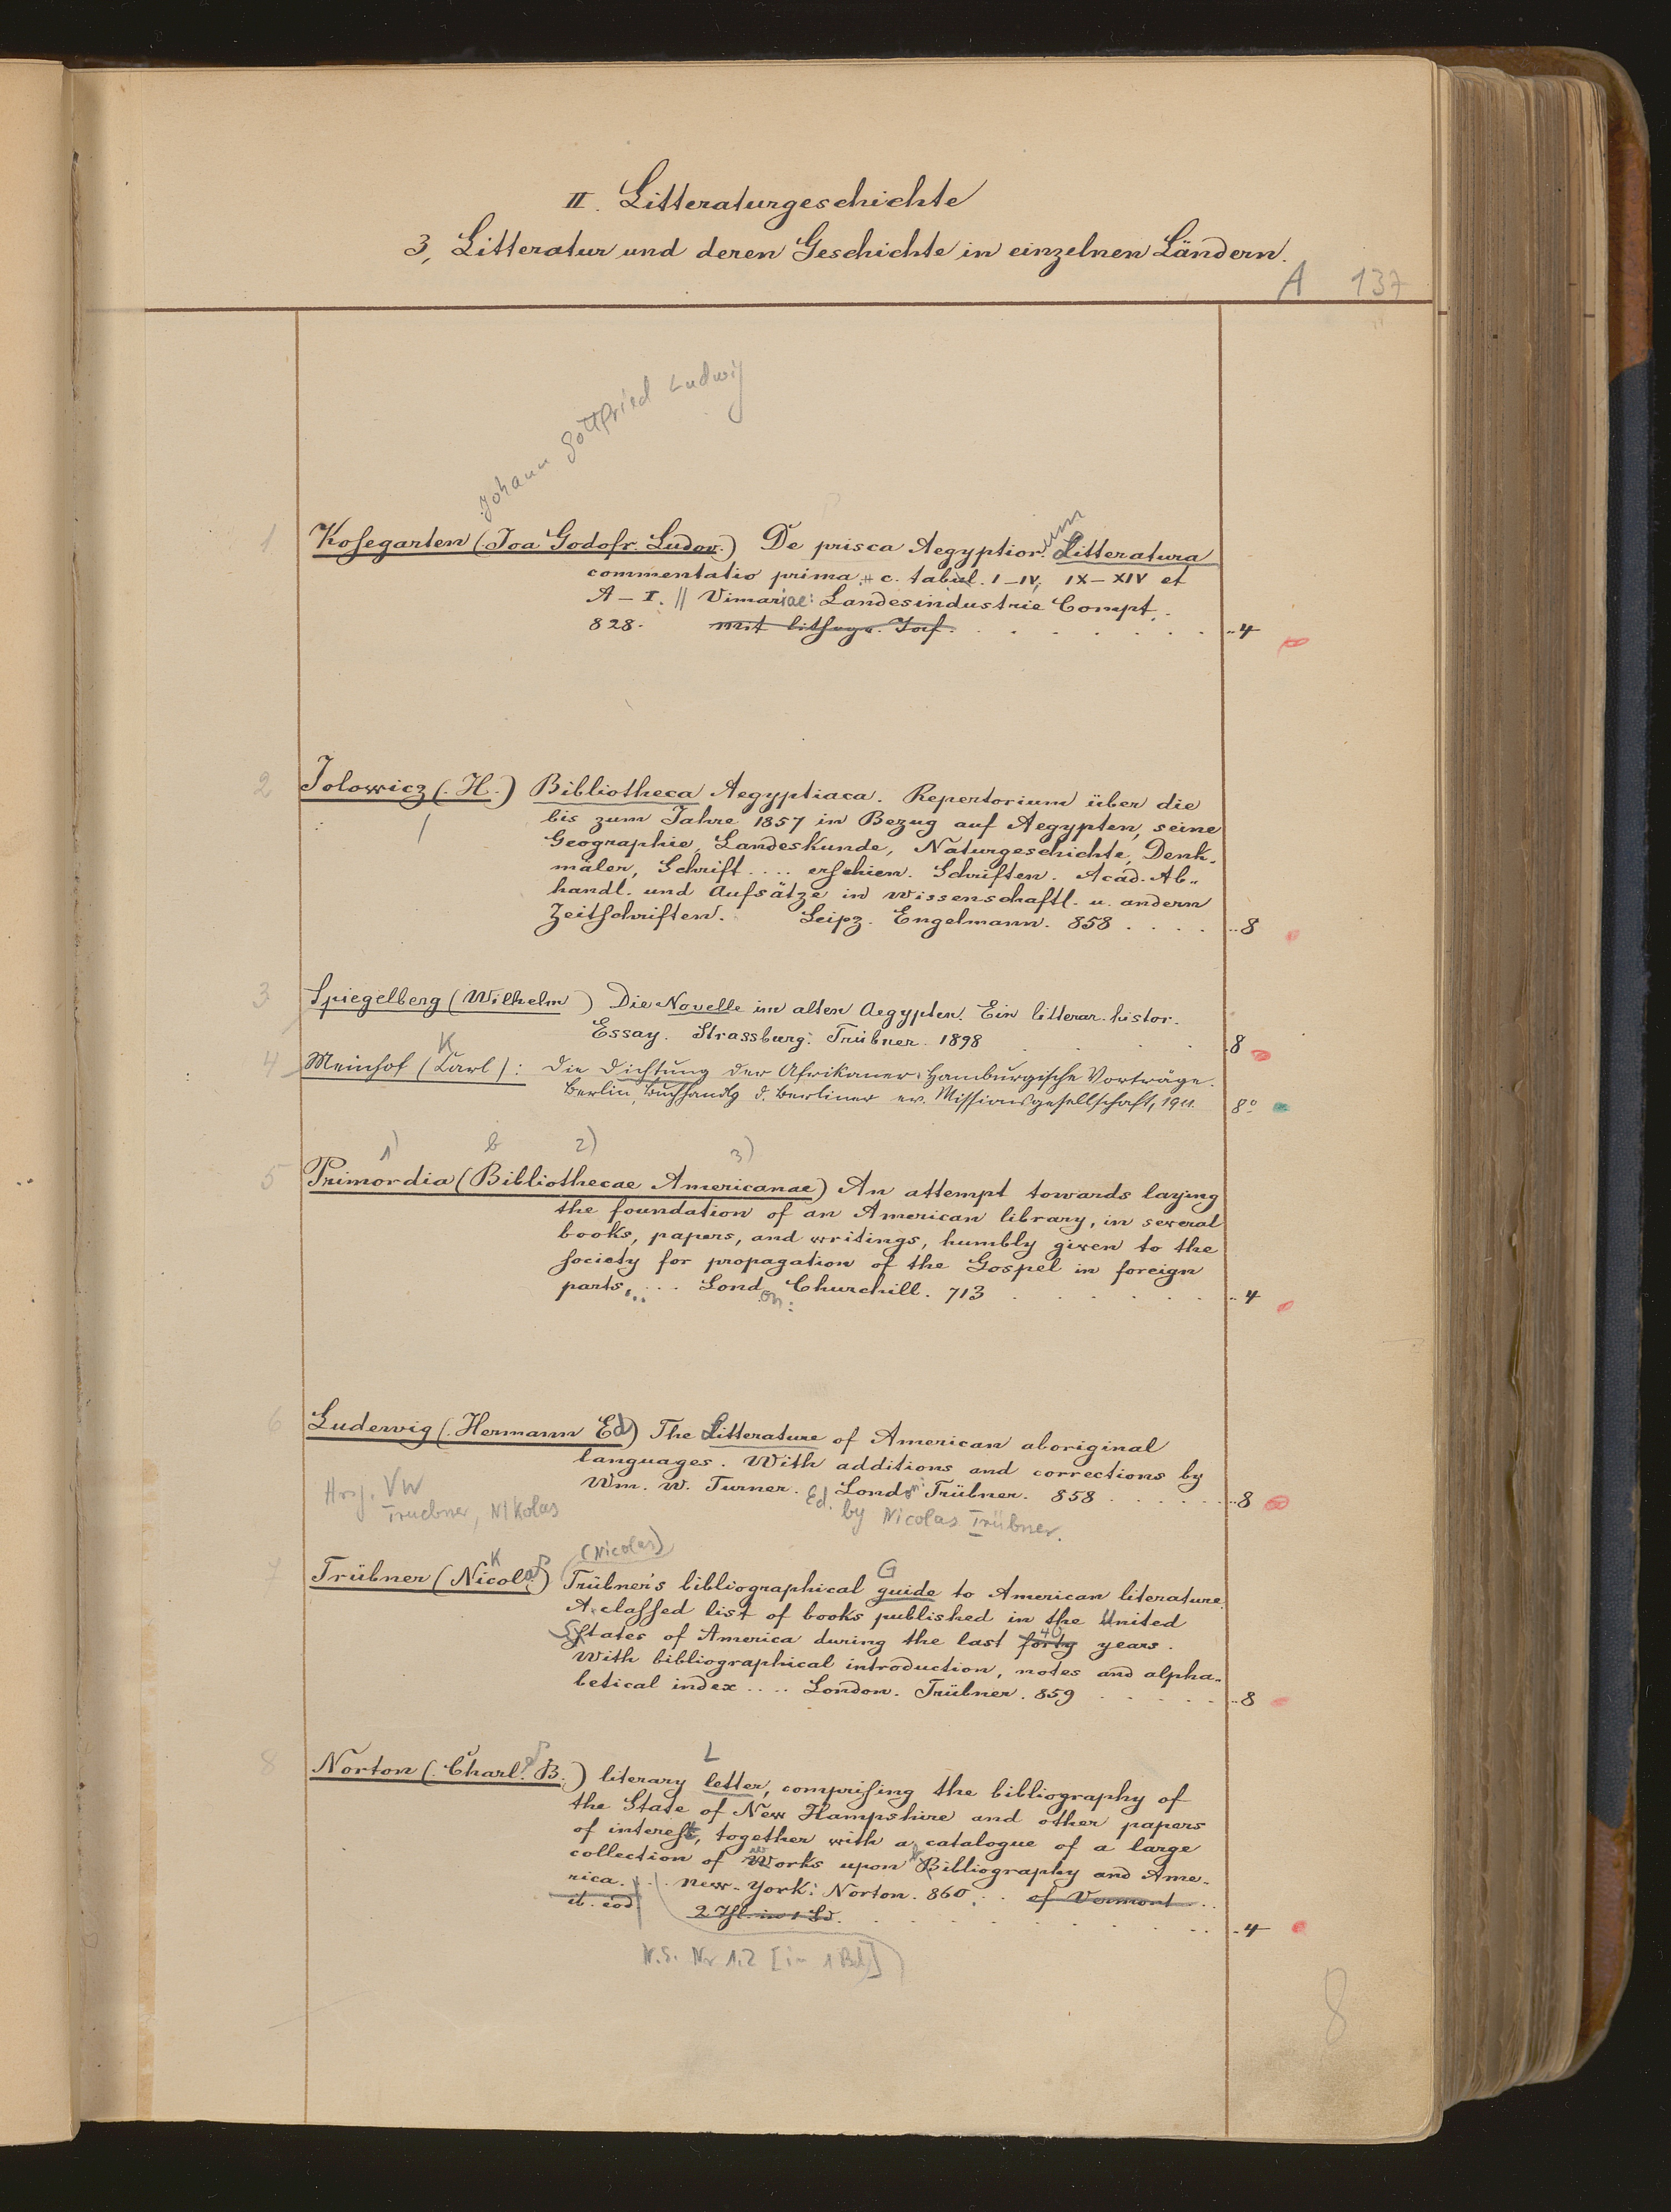 II. Litteraturgeschichte
3, Litteratur und deren Geschichte in einzelnen Ländern.
A 137
Johann Gottfried Ludwig
1 Kosegarten (Joa Godofr. Ludov.) De prisca Aegyptior.um Litteratura
commentatio prima # c. tabul. I-IV, IX-XIV et
A-I. || Vimariae: Landesindustrie Compt.
828. mit lithogr. Taf. ..4
2 Jolowicz (H.) Bibliotheca Aegyptiaca. Repertorium über die
bis zum Jahre 1857 in Bezug auf Aegypten, seine
Geographie, Landeskunde, Naturgeschichte, Denk-
mäler, Schrift .... erschien. Schriften. Acad. Ab-
handl. und Aufsätze in wissenschaftl. u. andern
Zeitschriften. Leipz. Engelmann. 858 .... ..8
3 Spiegelberg (Wilhelm) Die Novelle im alten Aegypten. Ein litterar. histor.
Essay. Strassburg: Trübner. 1898 . . . . 8
K
4 Meinhof (Carl): Die Dichtung der Afrikaner. Hamburgische Vorträge.
Berlin, Buchhandlg d. Berliner ev. Missionsgesellschaft, 1911. 8°
1) b 2) 3)
5 Primordia (Bibliothecae Americanae) An attempt towards laying
the foundation of an American library, in several
books, papers, and writings, humbly given to the
society for propagation of the Gospel in foreign
parts, ... London: Churchill. 713 . . . . . . ..4
6 Ludewig (Hermann Ed) The Litterature of American aboriginal
languages. With additions and corrections by
Wm. W. Turner. London: Trübner. 858 ...... ..8
Hrsg. VW
Truebner, Nikolas
Ed. by Nicolas Trübner.
(Nicolas)
K G
7 Trübner (Nicolas) Trübner's bibliographical guide to American literature.
A classed list of books published in the United
States of America during the last forty 40 years.
With bibliographical introduction, notes and alpha-
betical index .... London. Trübner. 859 ...... ..8
L
8 Norton (Charl. B.) literary letter, comprising the bibliography of
the State of New Hampshire and other papers
of interest, together with a catalogue of a large
collection of Works upon Bibliography and Ame-
rica. ... New-York: Norton. 860. .. of Vermont ..
ib. eod 2 Thl. in 1 Bd. . . . . . . . . ..4
N.S. Nr 1.2 [in 1 Bd]
8